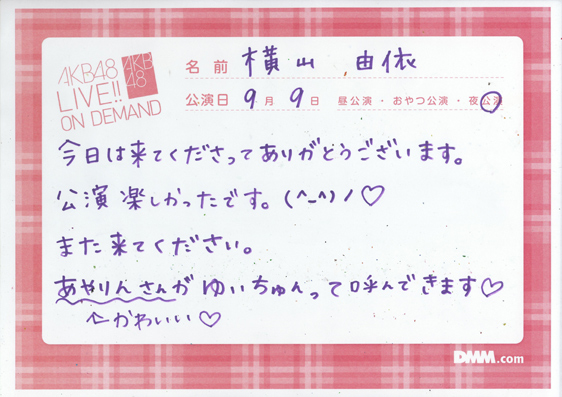 AKB48
LIVE!!
ON DEMAND
AKB
48
名前 横山 由依
公演日 9月 9日 昼公演・おやつ公演・夜公演
今日は来てくださってありがとうございます。
公演楽しかったです。(^-^)ノ♡
また来てください。
あやりんさんがゆいちゅんって呼んできます♡
←かわいい♡
DMM.com